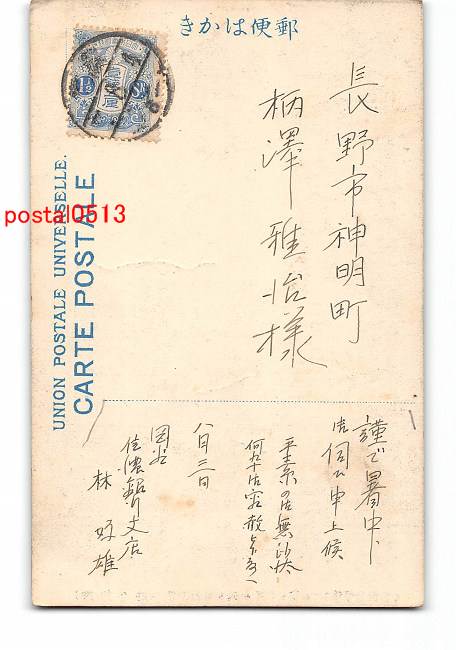 郵便はがき
UNION POSTALE UNIVERSELLE.
CARTE POSTALE
1½
Sn
postal0513
長野市神明町
柄澤雅治様
謹で暑中
御伺ひ申上候
平素の御無沙汰
何卒御容赦
八月三日
岡谷
信濃銀行支店
林 好雄